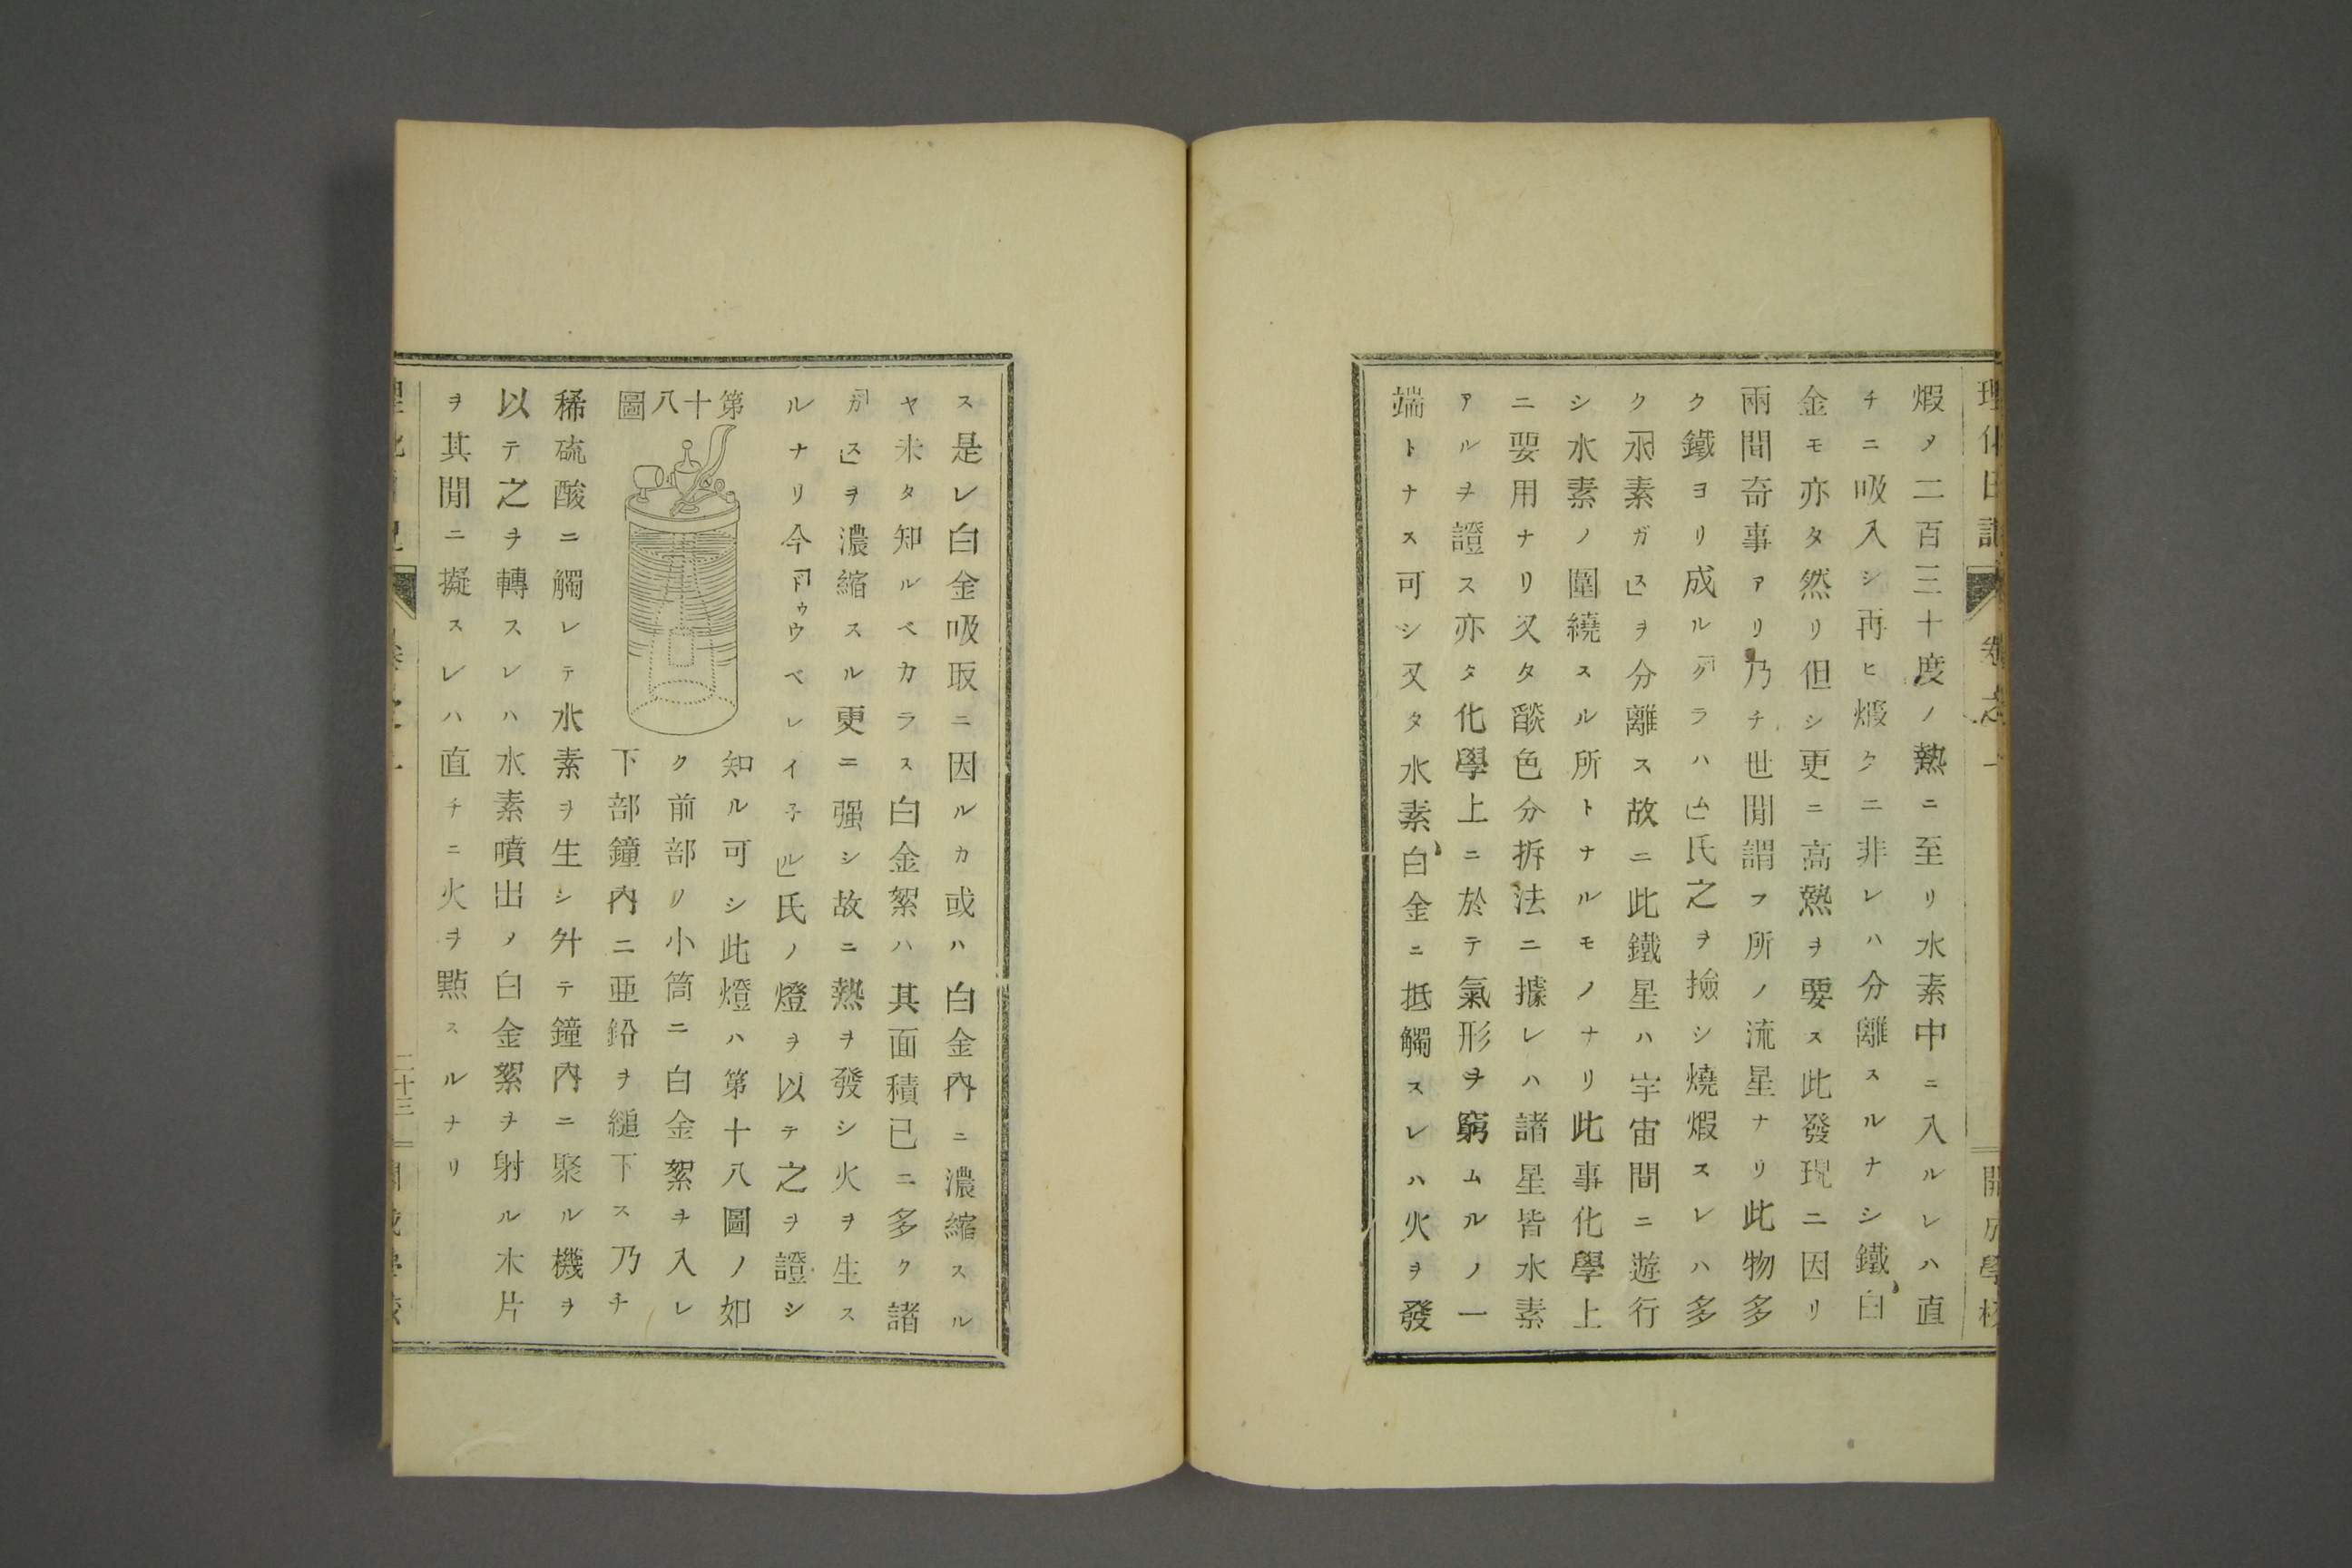 煆メ二百三十度ノ熱ニ至リ水素中ニ入ルレハ直
チニ吸入シ再ヒ煆クニ非レハ分離スルナシ鐵、白
金モ亦タ然リ但シ更ニ高熱ヲ要ス此發現ニ因リ
兩間奇事アリ乃チ世間謂フ所ノ流星ナリ此物多
ク鐵ヨリ成ル「グラハム」氏之ヲ撿シ燒煆スレハ多
ク「水素ガス」ヲ分離ス故ニ此鐵星ハ宇宙間ニ遊行
シ水素ノ圍繞スル所トナルモノナリ此事化學上
ニ要用ナリ又タ燄色分拆法ニ據レハ諸星皆水素
アルヲ證ス亦タ化學上ニ於テ氣形ヲ窮ムルノ一
端トナス可シ又タ水素、白金ニ抵觸スレハ火ヲ發
ス是レ白金吸取ニ因ルカ或ハ白金內ニ濃縮スル
ヤ未タ知ルベカラス白金絮ハ其面積已ニ多ク諸
「ガス」ヲ濃縮スル更ニ强シ故ニ熱ヲ發シ火ヲ生ス
ルナリ今「ドゥウベレイネル」氏ノ燈ヲ以テ之ヲ證シ
第十八圖
知ル可シ此燈ハ第十八圖ノ如
ク前部ノ小筒ニ白金絮ヲ入レ
下部鐘內ニ亜鉛ヲ縋下ス乃チ
稀硫酸ニ觸レテ水素ヲ生シ外テ鐘內ニ聚ル機ヲ
以テ之ヲ轉スレハ水素噴出メ白金絮ヲ射ル木片
ヲ其間ニ擬スレハ直チニ火ヲ點スルナリ
二十三